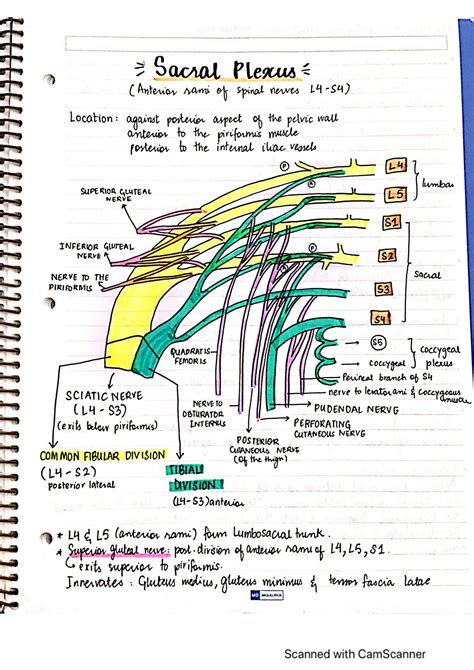 Sacral Plexus
(Anterior rami of spinal nerves L4-S4)
Location: against posterior aspect of the pelvic wall
anterior to the piriformis muscle
posterior to the internal iliac vessels
P
L4
A
L5
lumbar
SUPERIOR GLUTEAL
NERVE
S1
INFERIOR GLUTEAL
NERVE
P
S2
A
NERVE TO THE
PIRIFORMIS
sacral
S3
S4
QUADRATUS
FEMORIS
S5
coccygeal
coccygeal
plexus
Perineal branch of S4
nerve to levator ani & coccygeus
SCIATIC NERVE
(L4-S3)
(exits below piriformis)
NERVE TO
OBTURATOR
INTERNUS
PUDENDAL NERVE
PERFORATING
CUTANEOUS NERVE
POSTERIOR
CUTANEOUS NERVE
(Of the thigh)
COMMON FIBULAR DIVISION
(L4-S2)
posterior lateral
TIBIAL
DIVISION
(L4-S3) anterior
* L4 & L5 (anterior rami) form lumbosacral trunk.
* Superior gluteal nerve: post. division of anterior rami of L4, L5, S1.
exits superior to piriformis.
Innervates: Gluteus medius, gluteus minimus & tensor fascia latae
Scanned with CamScanner